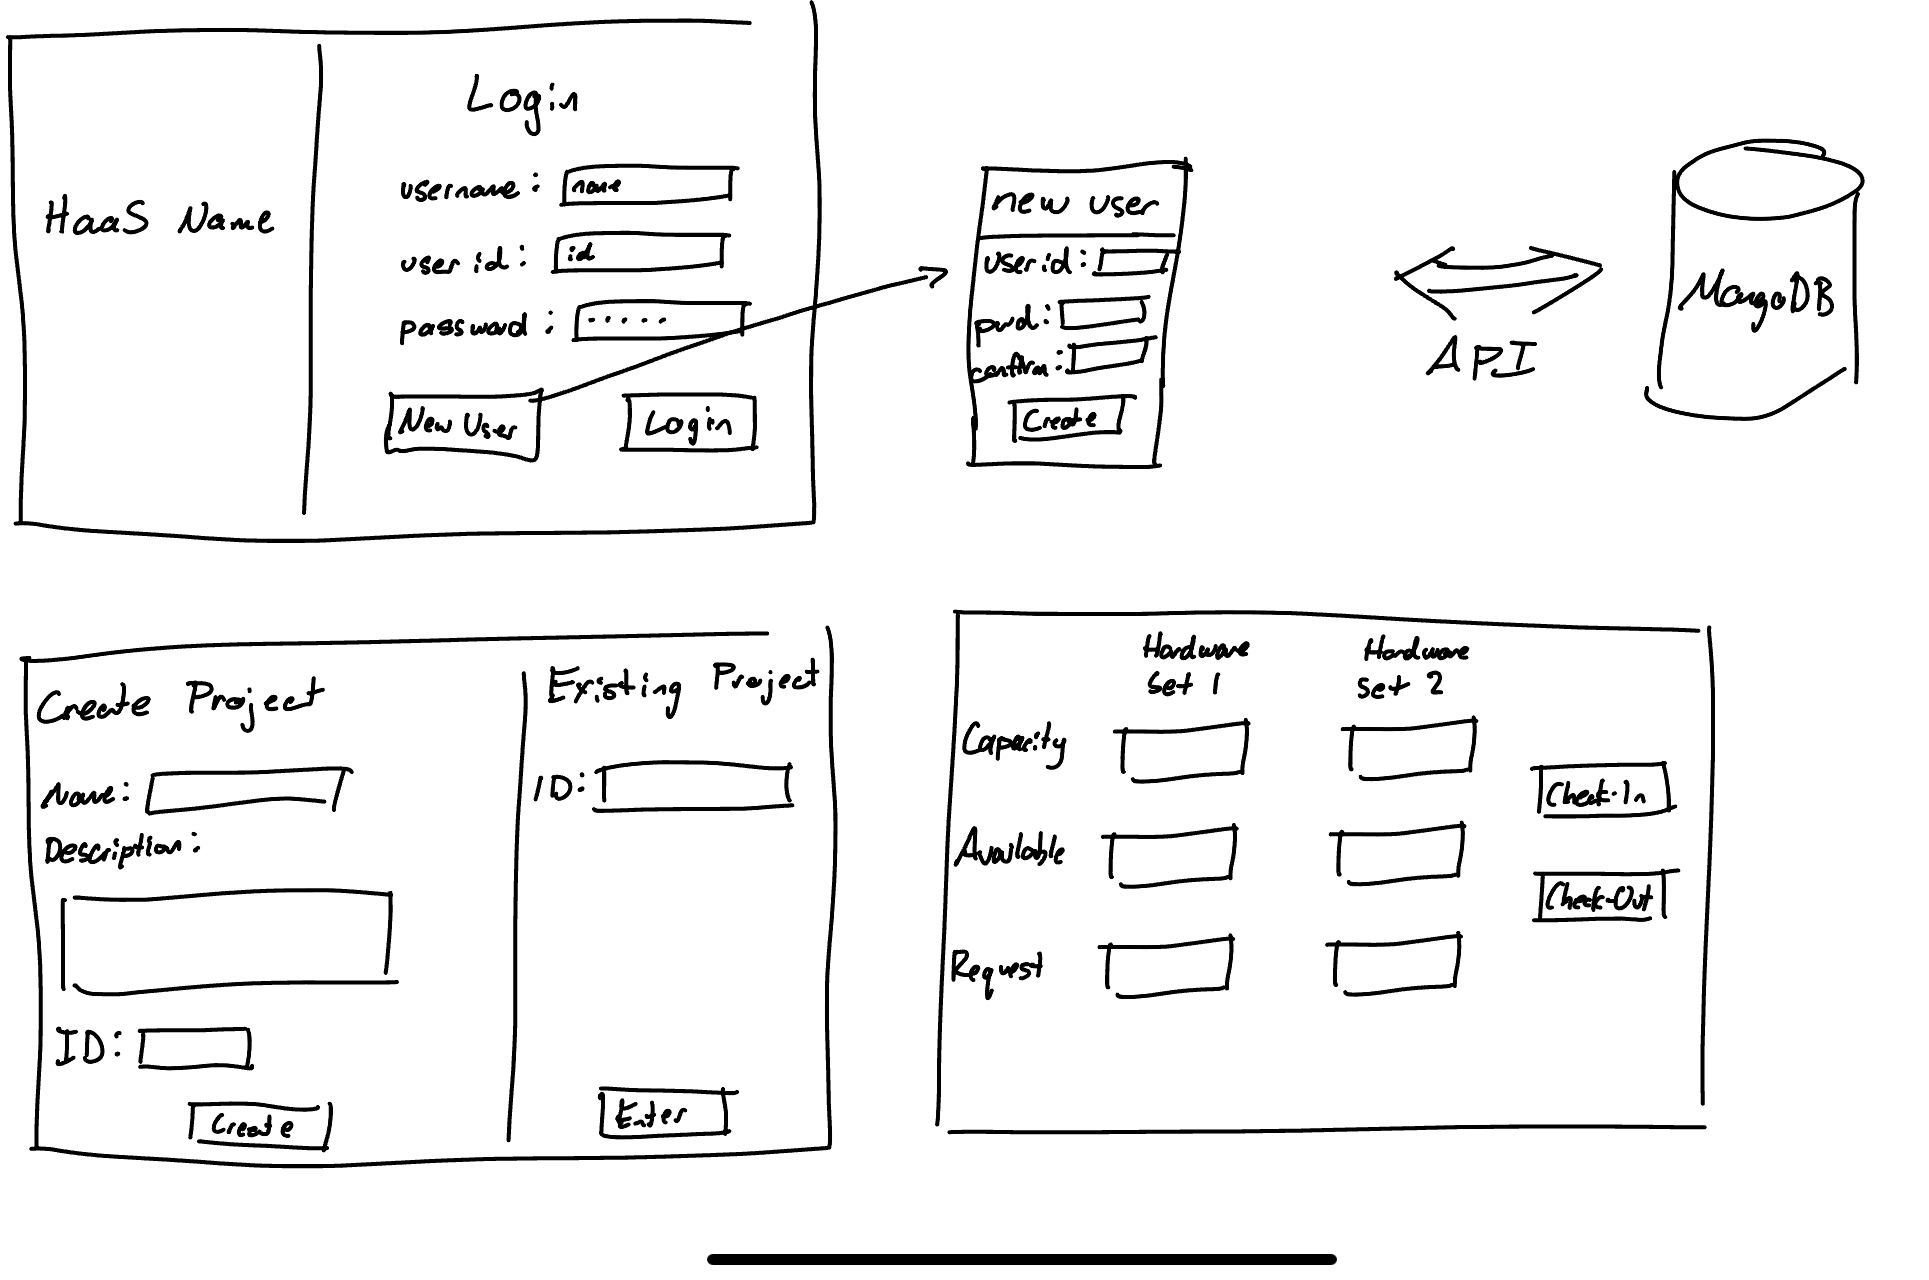 Login
HaaS Name
username: name
user id: id
password: .....
New User
Login
new user
user id:
pwd:
confirm:
Create
API
MongoDB
Create Project
Name:
Description:
ID:
Create
Existing Project
ID:
Enter
Hardware
Set 1
Hardware
Set 2
Capacity
Available
Request
Check-In
Check-Out